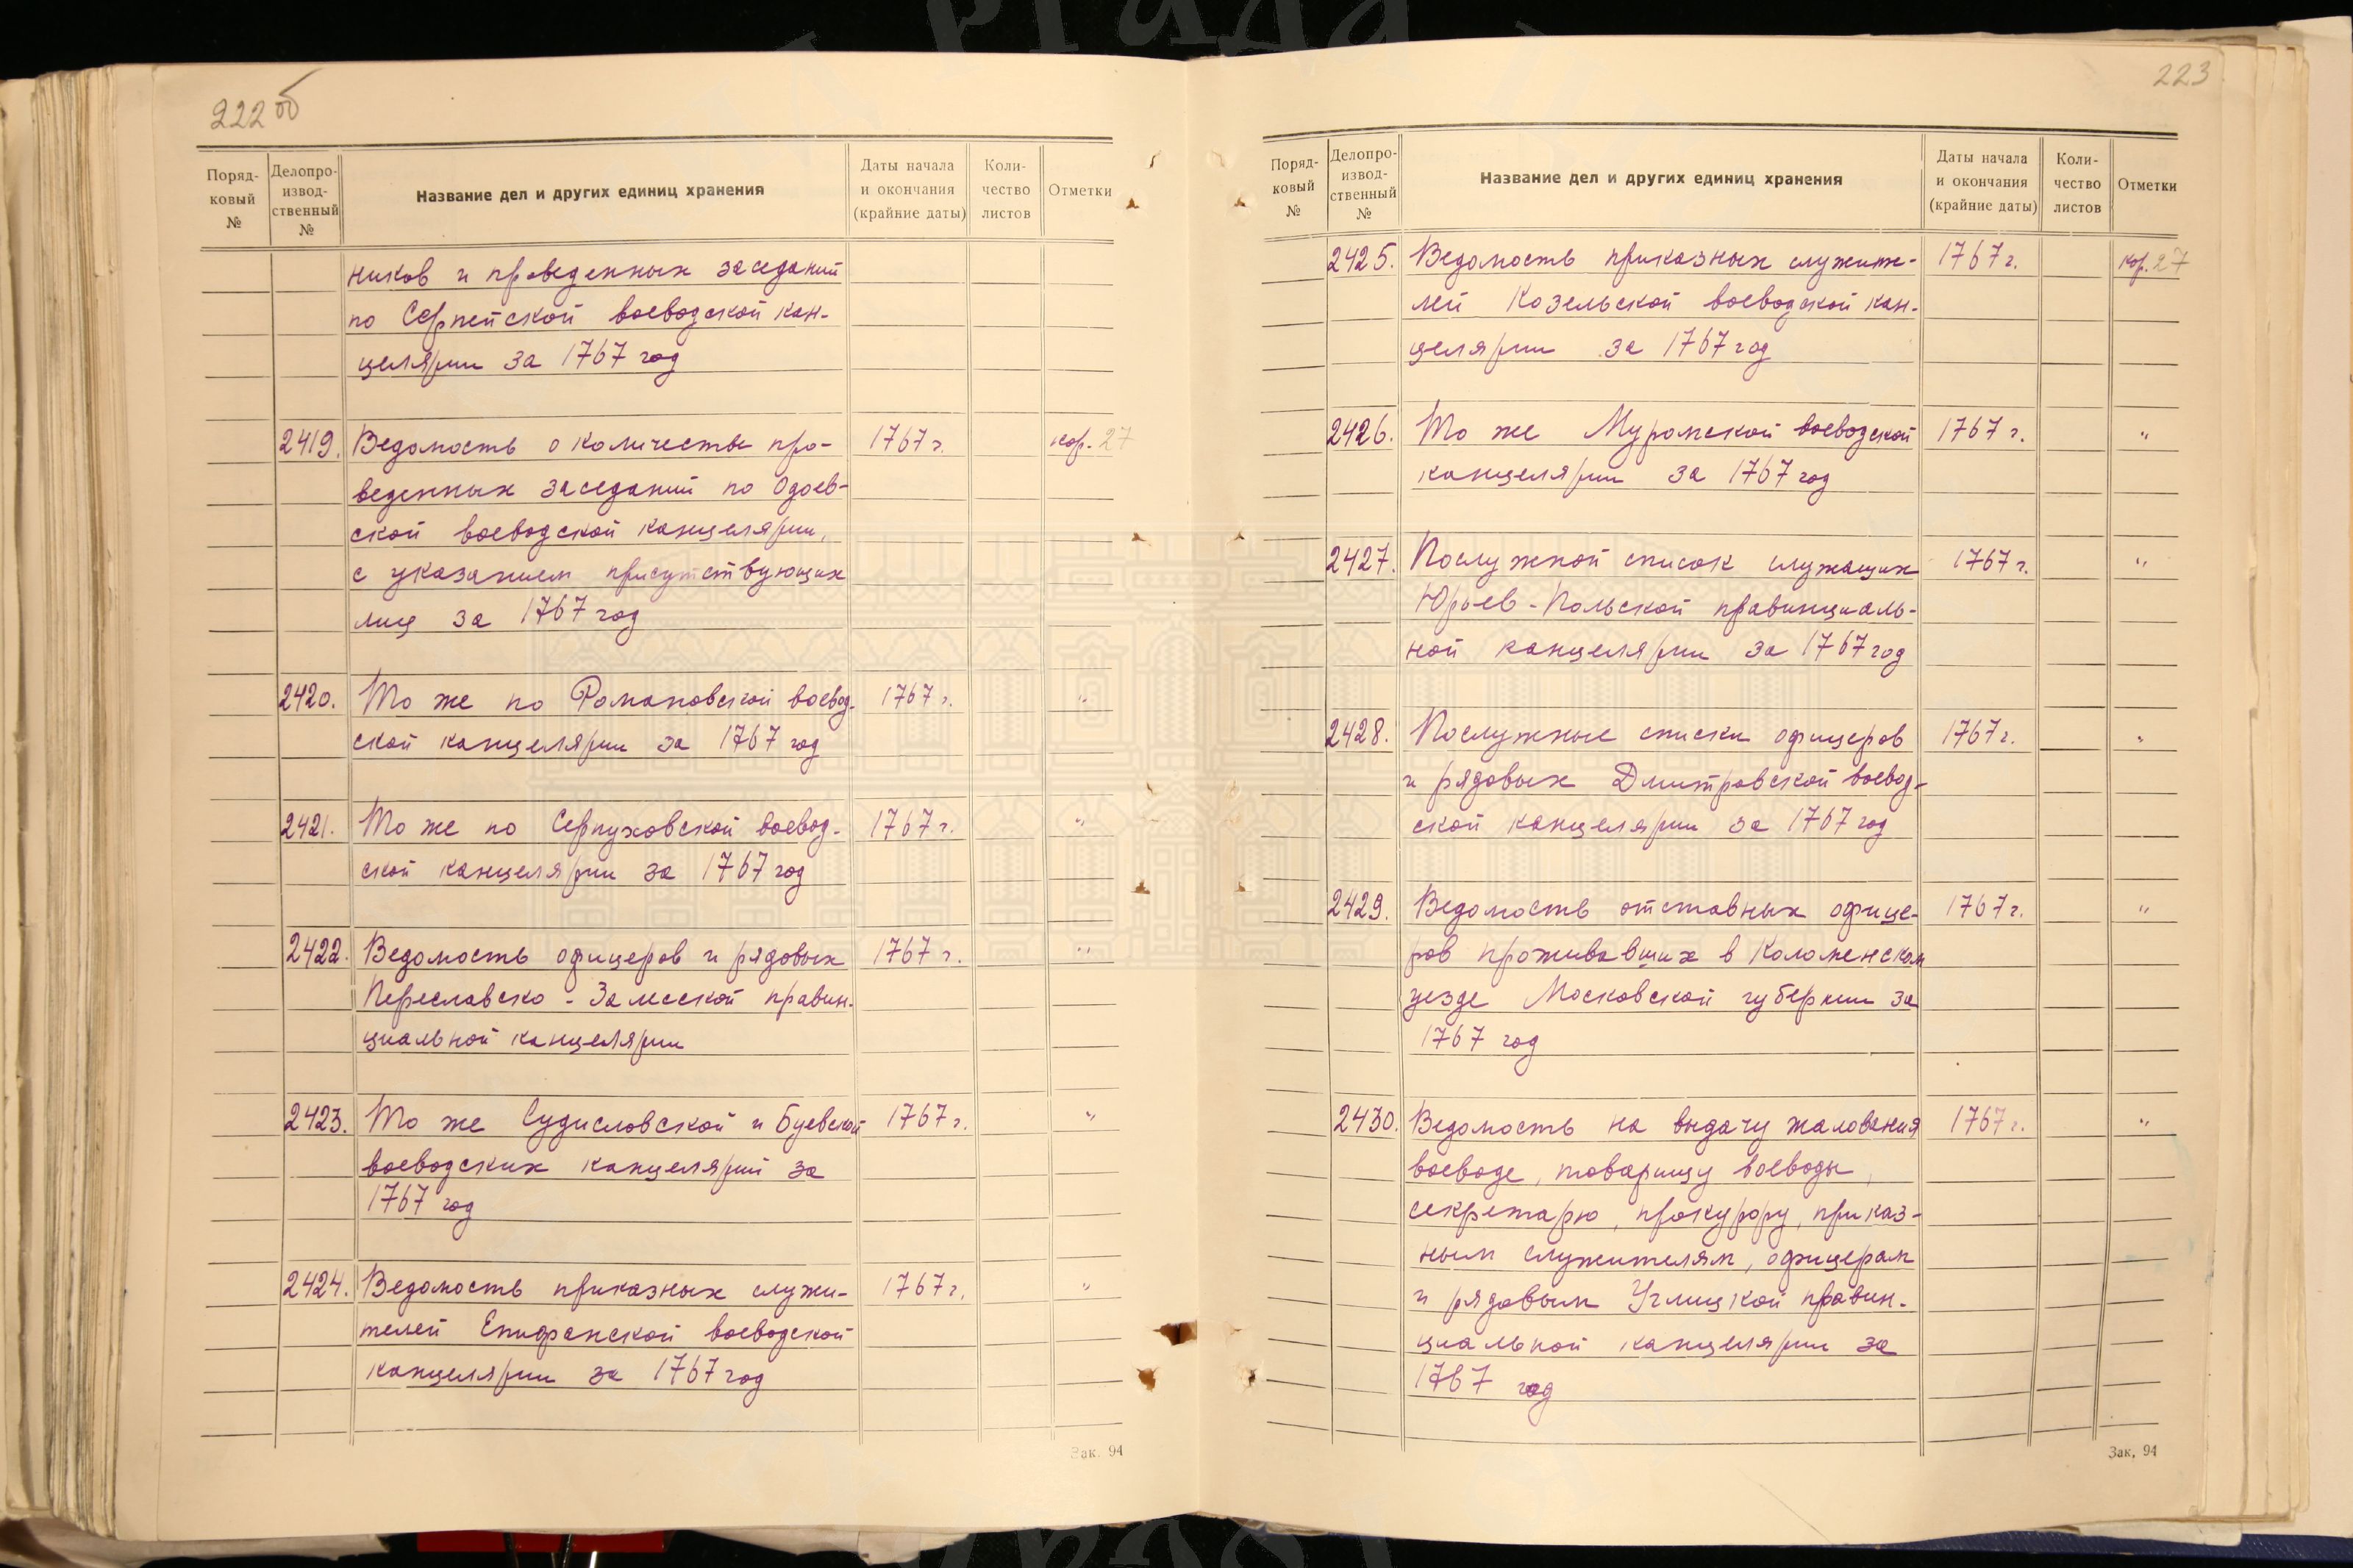 222 об
Поряд-
ковый
№
Делопро-
извод-
ственный
№
Название дел и других единиц хранения
Даты начала
и окончания
(крайние даты)
Коли-
чество
листов
Отметки
ников и проведенных заседаний
по Серпейской воеводской кан-
целярии за 1767 год
2419. Ведомость о количестве про- 1767 г. кор. 27
веденных заседаний по Одоев-
ской воеводской канцелярии,
с указанием присутствующих
лиц за 1767 год
2420. То же по Романовской воевод- 1767 г. "
ской канцелярии за 1767 год
2421. То же по Серпуховской воевод- 1767 г. "
ской канцелярии за 1767 год
2422. Ведомость офицеров и рядовых 1767 г. "
Переславско-Залесской провин-
циальной канцелярии
2423. То же Судисловской и Буевской 1767 г. "
воеводских канцелярий за
1767 год
2424. Ведомость приказных служи- 1767 г. "
телей Епифанской воеводской
канцелярии за 1767 год
Зак. 94
223
Поряд-
ковый
№
Делопро-
извод-
ственный
№
Название дел и других единиц хранения
Даты начала
и окончания
(крайние даты)
Коли-
чество
листов
Отметки
2425. Ведомость приказных служите- 1767 г. кор. 27
лей Козельской воеводской кан-
целярии за 1767 год
2426. То же Муромской воеводской 1767 г. "
канцелярии за 1767 год
2427. Послужной список служащих 1767 г. "
Юрьев-Польской провинциаль-
ной канцелярии за 1767 год
2428. Послужные списки офицеров 1767 г. "
и рядовых Дмитровской воевод-
ской канцелярии за 1767 год
2429. Ведомость отставных офице- 1767 г. "
ров проживавших в Коломенском
уезде Московской губернии за
1767 год
2430. Ведомость на выдачу жалования 1767 г. "
воеводе, товарищу воеводы,
секретарю, прокурору, приказ-
ным служителям, офицерам
и рядовым Углицкой провин-
циальной канцелярии за
1767 год
Зак. 94